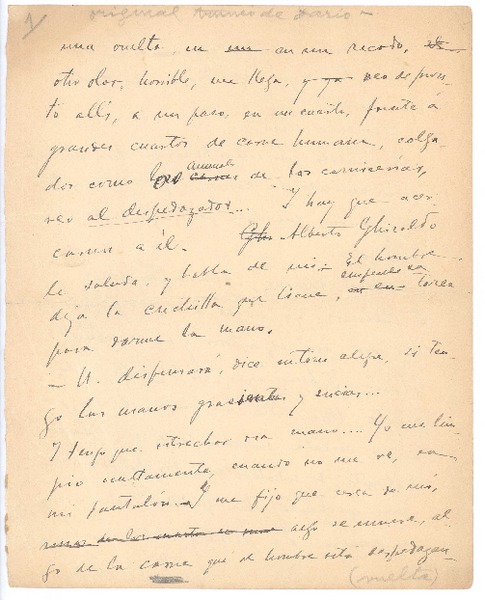 1/ original manus de Dario
una vuelta, en en un recodo,
otro olor, horrible, me llega, y ya veo de pron-
to allí, a un paso, en un cuarto, frente á
grandes cuartos de carne humana, colga-
dos como los animales de las carnicerías,
veo al despedazador... Y hay que acer-
carse a él. Alberto Ghiraldo
le saluda, y habla de mí. El hombre
deja la cuchilla que tiene, suspende su tarea
para darme la mano.
— U. dispensará, dice en tono alegre, si ten-
go las manos grasientas y sucias...
Y tengo que estrechar esa mano.... Yo me lim-
pio ocultamente, cuando no me ve, en
mi pantalón. Y me fijo que cerca de mí,
algo se mueve, al-
go de la carne que el hombre está despedazan-
(vuelta)